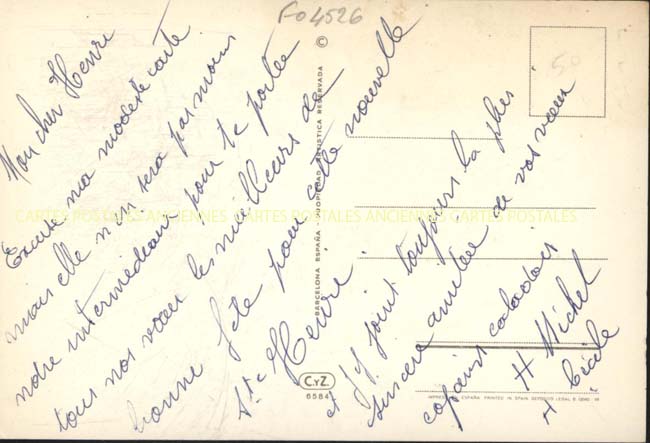 F04526
50
Mon cher Henri
Excuse ma modeste carte
mais elle n'en sera pas moins
notre intermédiaire pour te porter
tous nos vœux les meilleurs de
bonne fête pour cette nouvelle
Ste Henri.
et j'y joint toujours la plus
sincère amitiée de vos vieux
copains
H Michel
Cécile
CARTES POSTALES ANCIENNES CARTES POSTALES ANCIENNES CARTES POSTALES
©
BARCELONA ESPAÑA - PROPIEDAD ARTISTICA RESERVADA
C.yZ.
6584
IMPRESO EN ESPAÑA PRINTED IN SPAIN DEPOSITO LEGAL B.